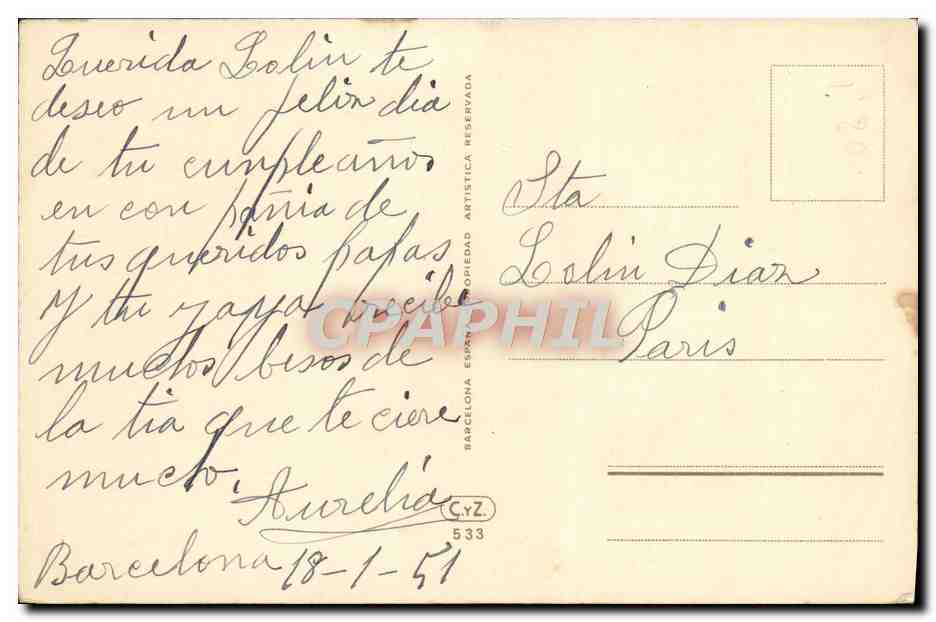 Querida Lolin te
deseo un felix dia
de tu cunpleaños
en con pañia de
tus queridos papas
Y tu yaya recibe
muctos besos de
la tia que te ciere
mucto.
Aurelia
Barcelona 18-1-51
BARCELONA ESPAÑA PROPIEDAD ARTISTICA RESERVADA
CPAPHIL
C.Y Z.
533
Sta
Lolin Diaz
Paris